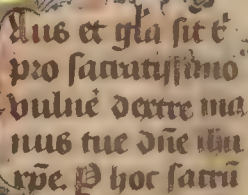 Laus et gl̄a sit t̄
pro sacratissimo
vulne᷑ dextre ma
nus tue dn̄e ihu
xp̄e. P hoc sacrū